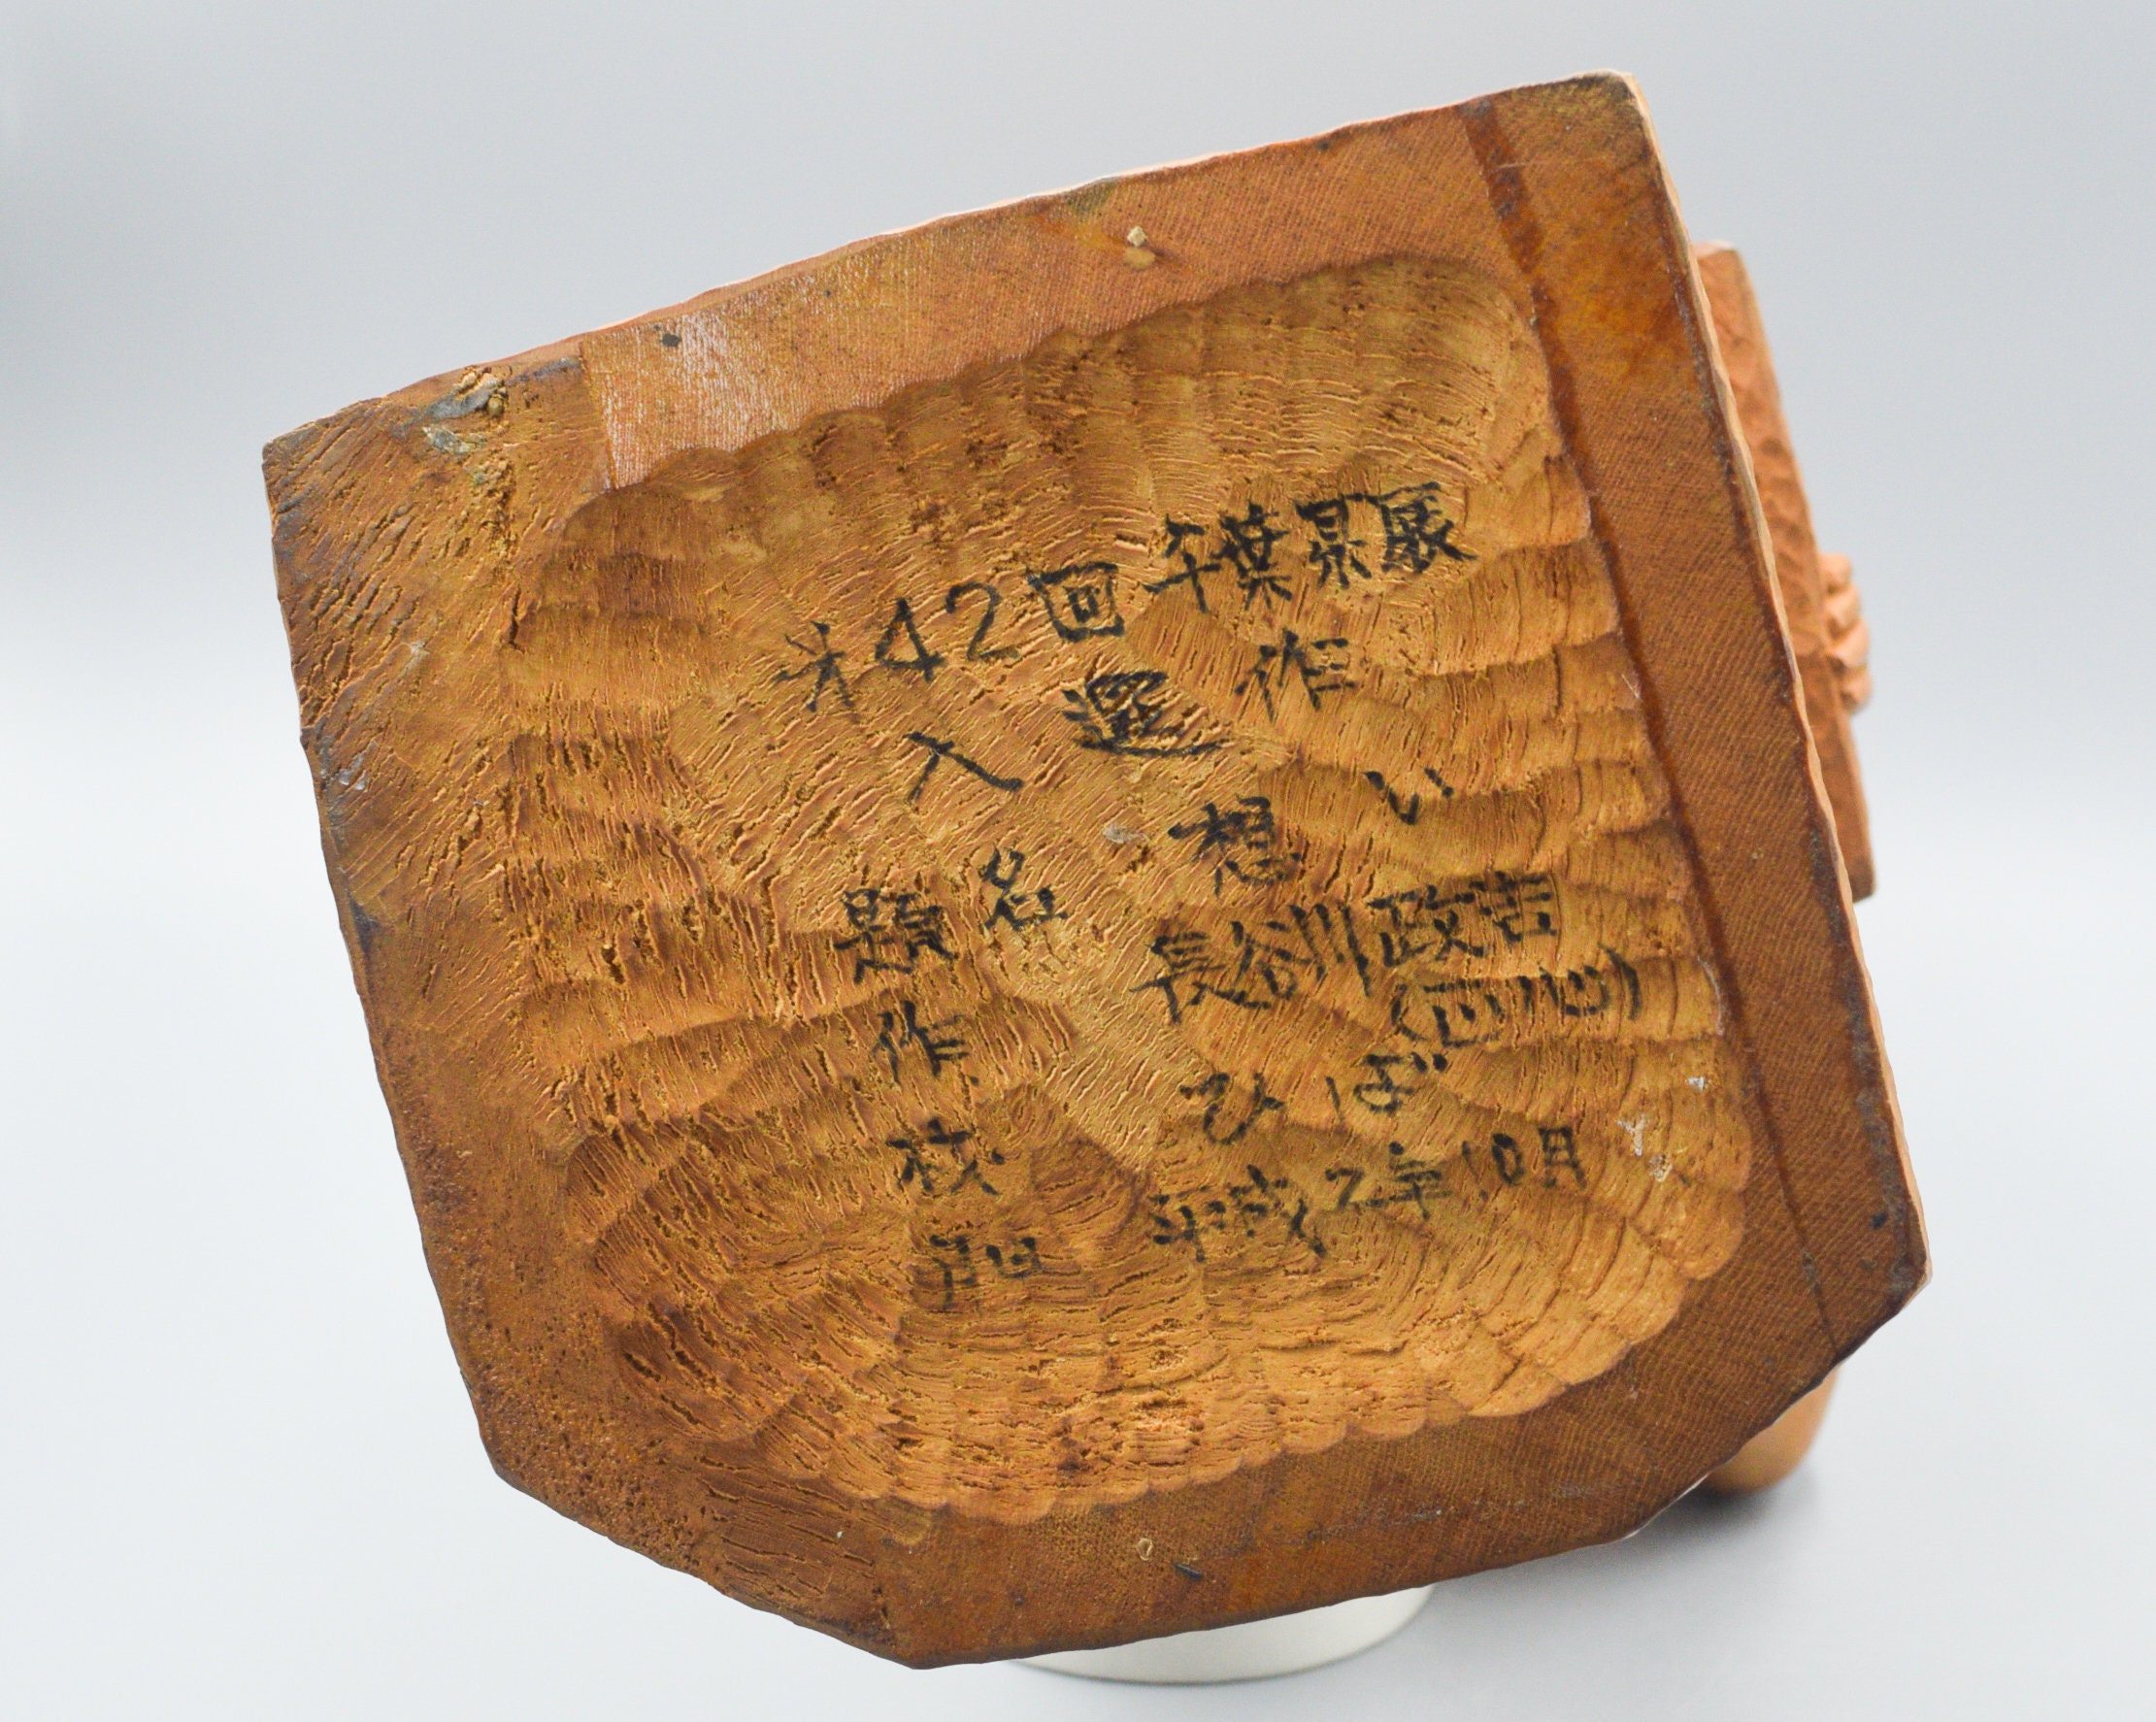 第42回千葉県展
入選作
題名 想い
作 長谷川政吉
材 ひば
平成2年10月